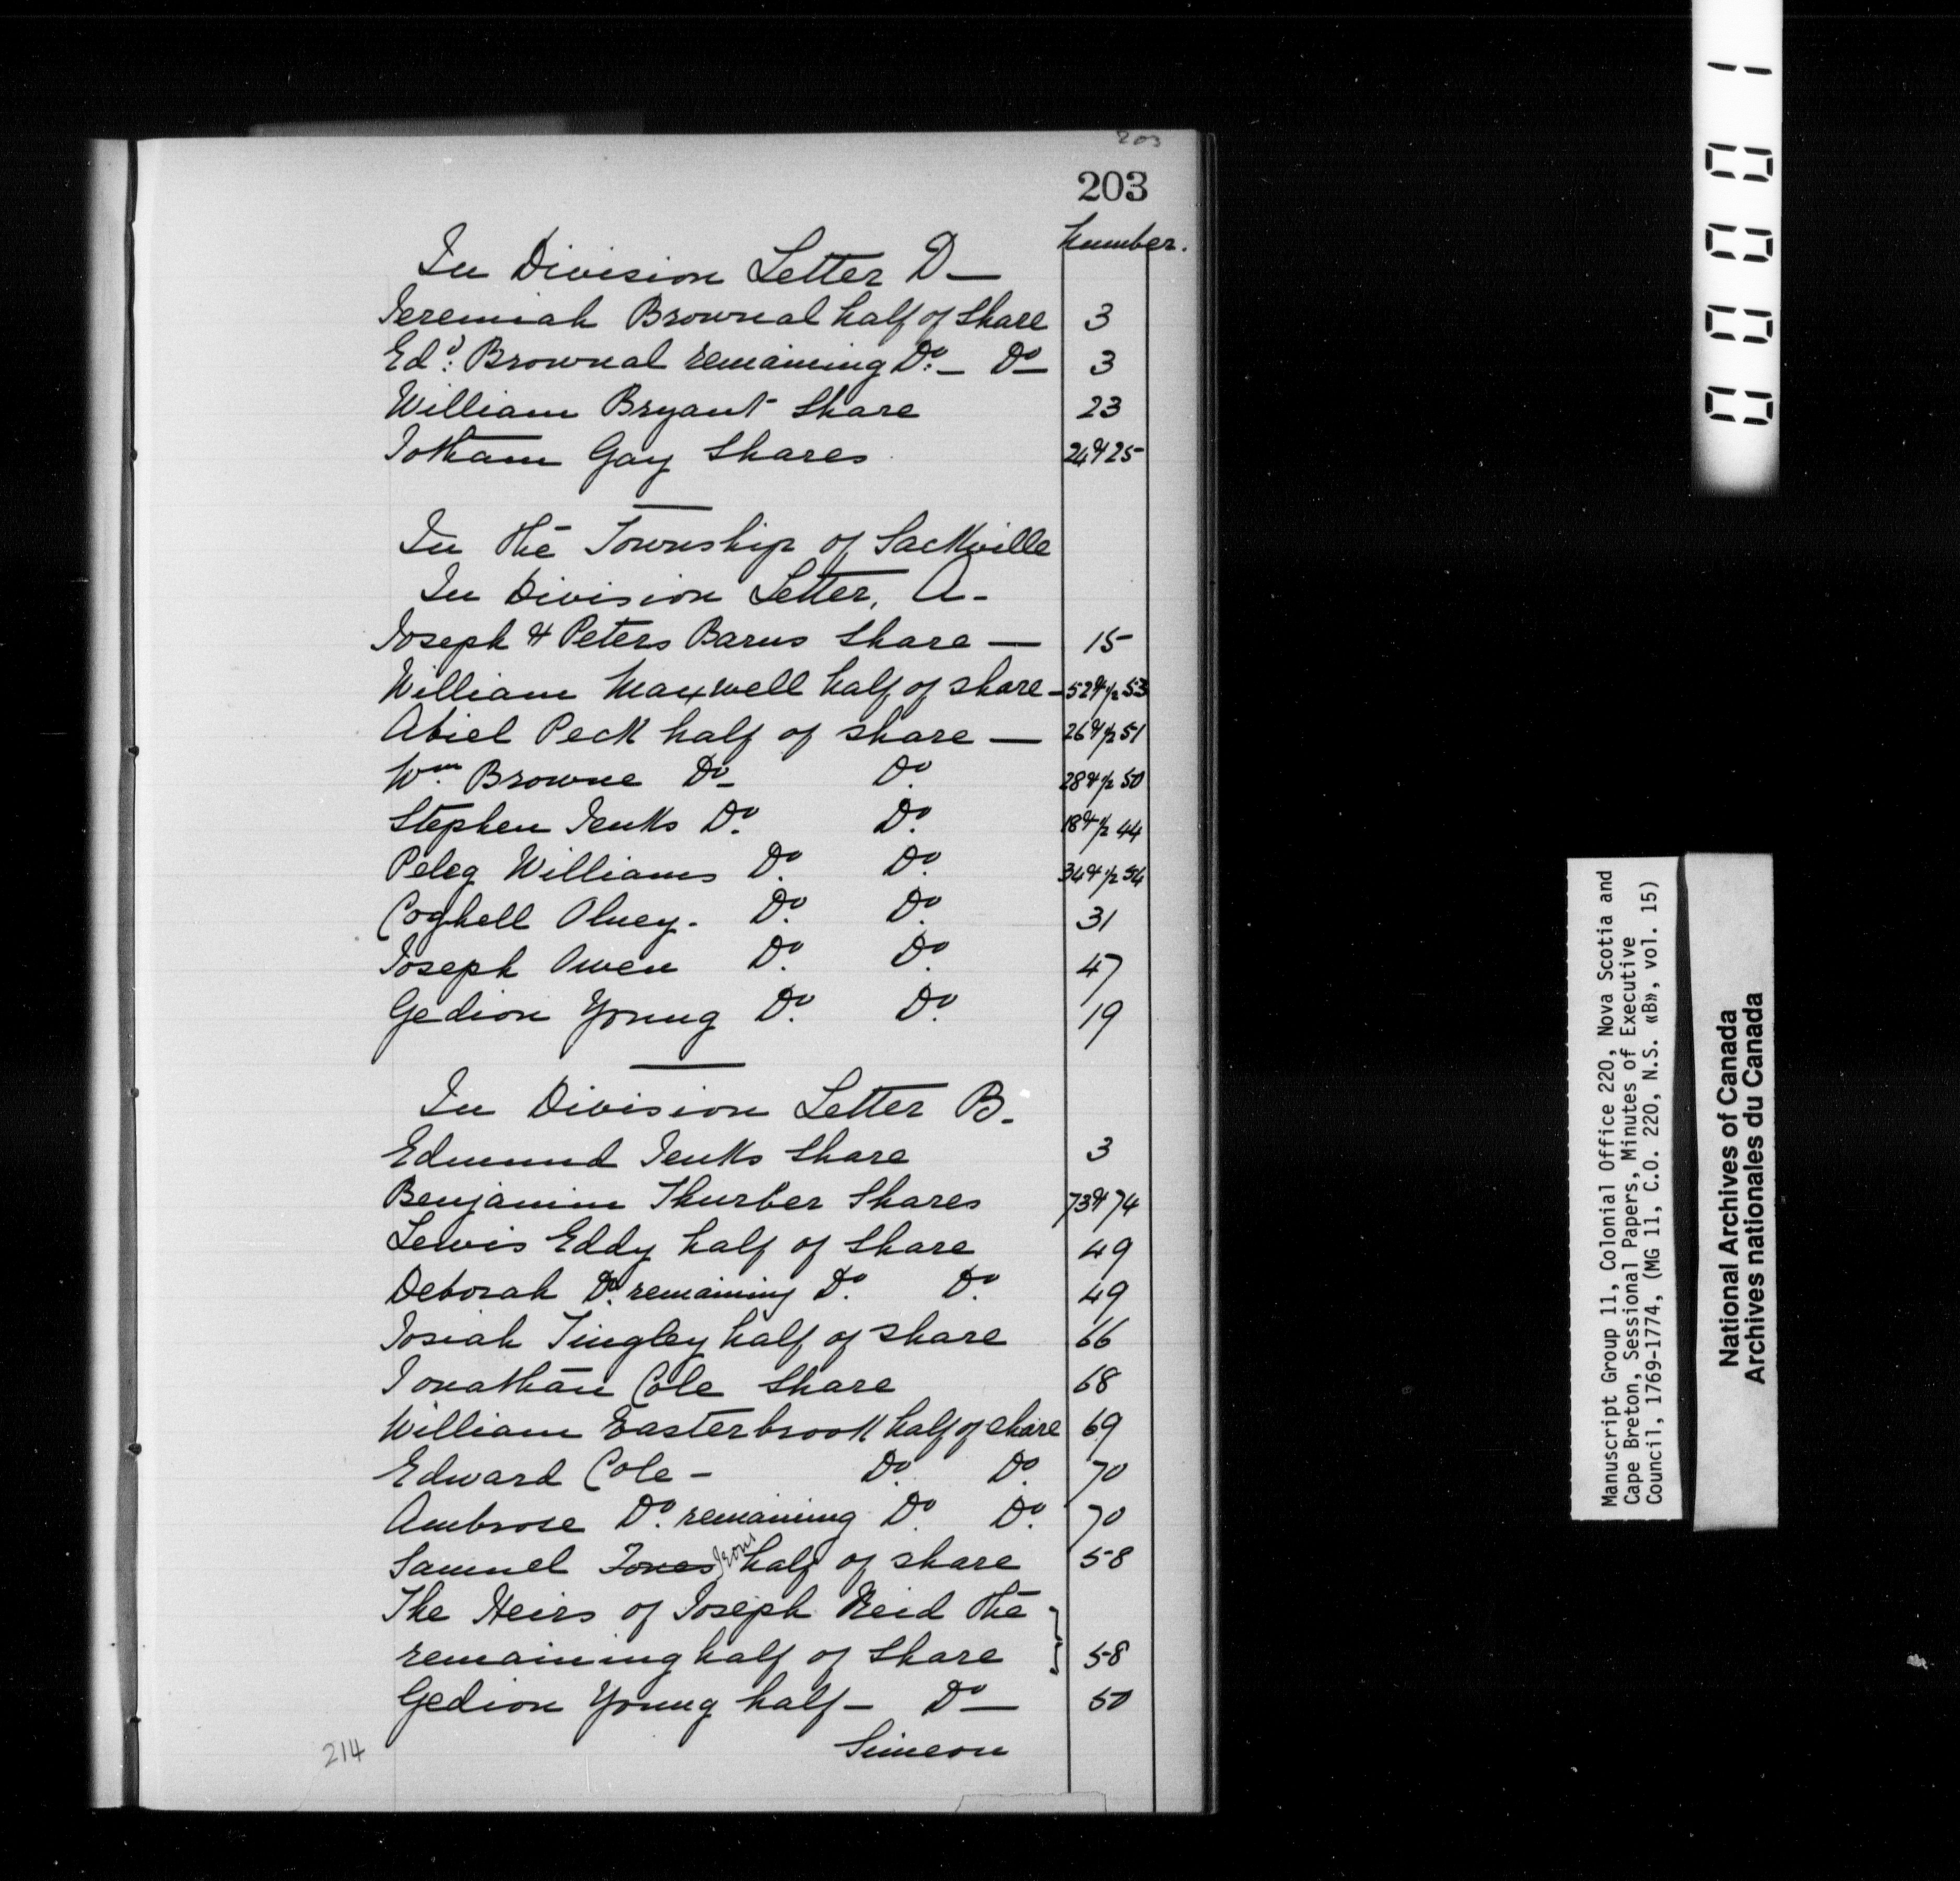 203
203
Number.
In Division Letter D—
Jeremiah Brownal half of Share 3
Edd. Brownal remaining Do. — Do — 3
William Bryant Share 23
Jotham Gay Shares 24 & 25
In the Township of Sackville
In Division Letter, A-
Joseph & Peters Barns Share — 15
William Maxwell half of share - 52 & 1/2 53
Abiel Peck half of share — 26 & 1/2 51
Wm Browne Do- Do. 28 & 1/2 50
Stephen Jenks Do. Do. 18 & 1/2 44
Peleg Williams Do. Do. 34 & 1/2 54
Coghell Olney - Do. Do. 31
Joseph Owen Do. Do. 47
Gedion Young Do. Do. 19
In Division Letter B.
Edmund Jenks Share 3
Benjamin Thurber Shares 73 & 74
Lewis Eddy half of Share 49
Deborah Do. remaining Do. Do. 49
Josiah Tingley half of share 66
Jonathan Cole Share 68
William Easterbrook half of share 69
Edward Cole - Do. Do. 70
Ambrose Do. remaining Do. Do. 70
Samuel Jones Irons half of share 58
The Heirs of Joseph Reid the
remaining half of Share 58
Gedion Young half - Do — 50
Simeon
214
00001
Manuscript Group 11, Colonial Office 220, Nova Scotia and
Cape Breton, Sessional Papers, Minutes of Executive
Council, 1769-1774, (MG 11, C.O. 220, N.S. «B», vol. 15)
National Archives of Canada
Archives nationales du Canada